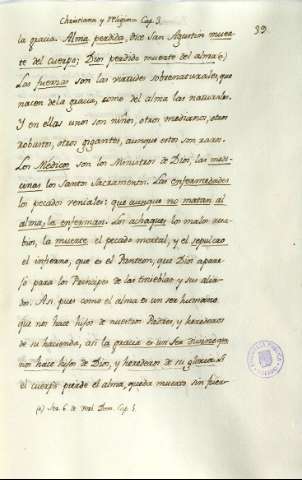 Christiano y Religioso Cap. 3.
39.
la gracia. Alma perdida, dice San Agustin muer-
te del cuerpo; Dios perdido muerte del alma (a)
Las fuerzas son las virtudes sobrenaturales, que
nacen de la gracia, como del alma las naturales.
Y en ellas unos son niños, otros medianos, otros
robustos, otros gigantes, aunque estos son raros.
Los Médicos son los Ministros de Dios, las medi-
cinas los Santos Sacramentos. Las enfermedades
los pecados veniales: que aunque no matan al
alma, la enferman. Los achaques los malos ha-
bitos, la muerte el pecado mortal, y el sepulcro
el infierno, que es el Panteon, que Dios apare-
jó para los Principes de las tinieblas y sus alia-
dos. Asi pues como el alma es un ser humano
que nos hace hijos de nuestros Padres, y herederos
de su hacienda, asi la gracia es un ser divino que
nos hace hijos de Dios, y herederos de su gloria. Si
el cuerpo pierde el alma, queda muerto sin fuer-
(a) Ser. 6. de Verb. Dom. Cap. 5.